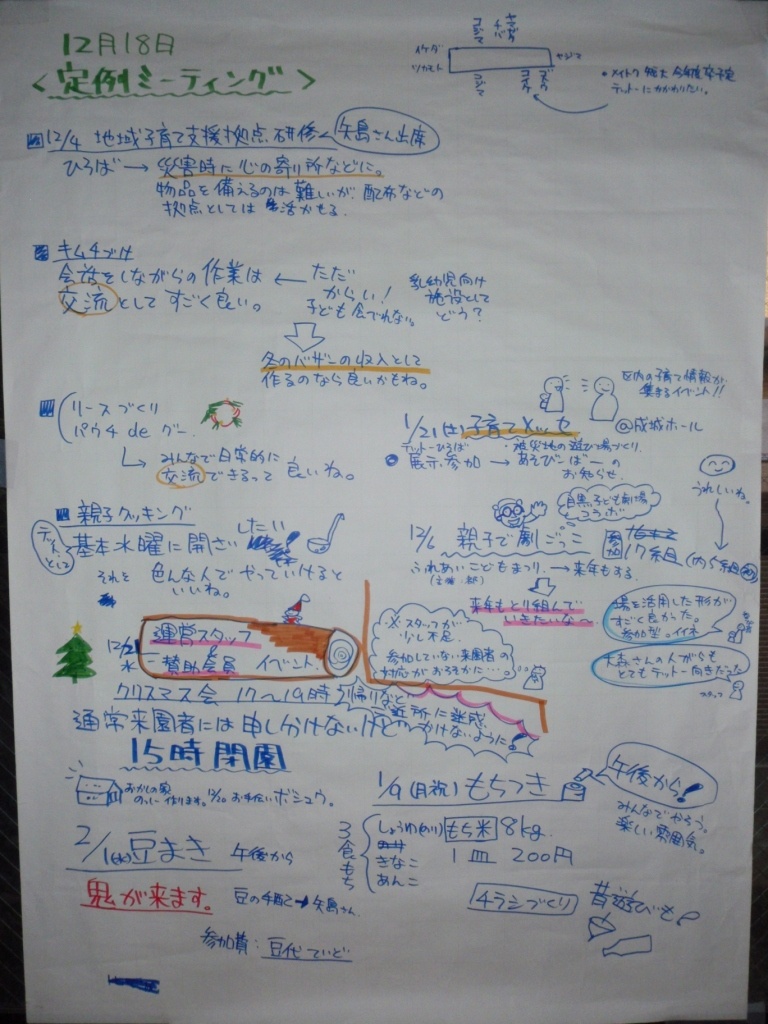 12月18日
<定例ミーティング>
イケダ
ツカモト
コジマ
チバ
コジマ
コイケ
・メイトク短大 今年度卒予定
テットーにかかわりたい。
12/4 地域子育て支援拠点研修 矢島さん出席
ひろば→災害時に心の寄り所などに。
物品を備えるのは難しいが、配布などの
拠点としては活かせる。
キムチづけ
会話をしながらの作業は
交流としてすごく良い。
←ただ
からい!
子ども食べれない。
乳幼児向け
施設として
どう?
冬のバザーの収入として
作るのなら良いかもね。
リースづくり
パウチ de グー.
みんなで日常的に
交流できるって良いね。
区内の子育て情報が
集まるイベント!!
1/21(土)子育てメッセ
@成城ホール
テットーひろば
・被災地の遊び場づくり
展示.参加→あそびーばーの
お知らせ.
うれしいね。
親子クッキング
テットーとして
基本水曜に開さいしたい
それを色んな人でやっていけると
いいね。
目黒子ども劇場
コラボ
12/6 親子で劇ごっこ
参加 17組(内5組初)
ふれあいこどもまつり.→来年もする.
来年もとり組んで
いきたいな~
場を活用した形が
すごく良かった。
参加型。イイネ
大森さんの人がらも
とてもテットー向きだった
スタッフ
・×スタッフが
少し不足.
参加していない来園者の
対応がおろそかに…。
12/21
水
運営スタッフ
&
賛助会員 イベント.
クリスマス会 17~19時
帰りなど
近所に迷惑
かけないように!
通常来園者には申しわけないけどの
15時閉園
おかしの家
作ります。12/20 お手伝いボシュウ。
1/9(月祝)もちつき
午後から!
みんなでやろう。
楽しい雰囲気。
2/1(水)豆まき 午後から
鬼が来ます。
豆の手配→矢島さん.
参加費:豆代ていど
3食もち
しょうゆ(のり)
きなこ
あんこ
もち米 8kg.
1皿 200円
チラシづくり
昔遊びも